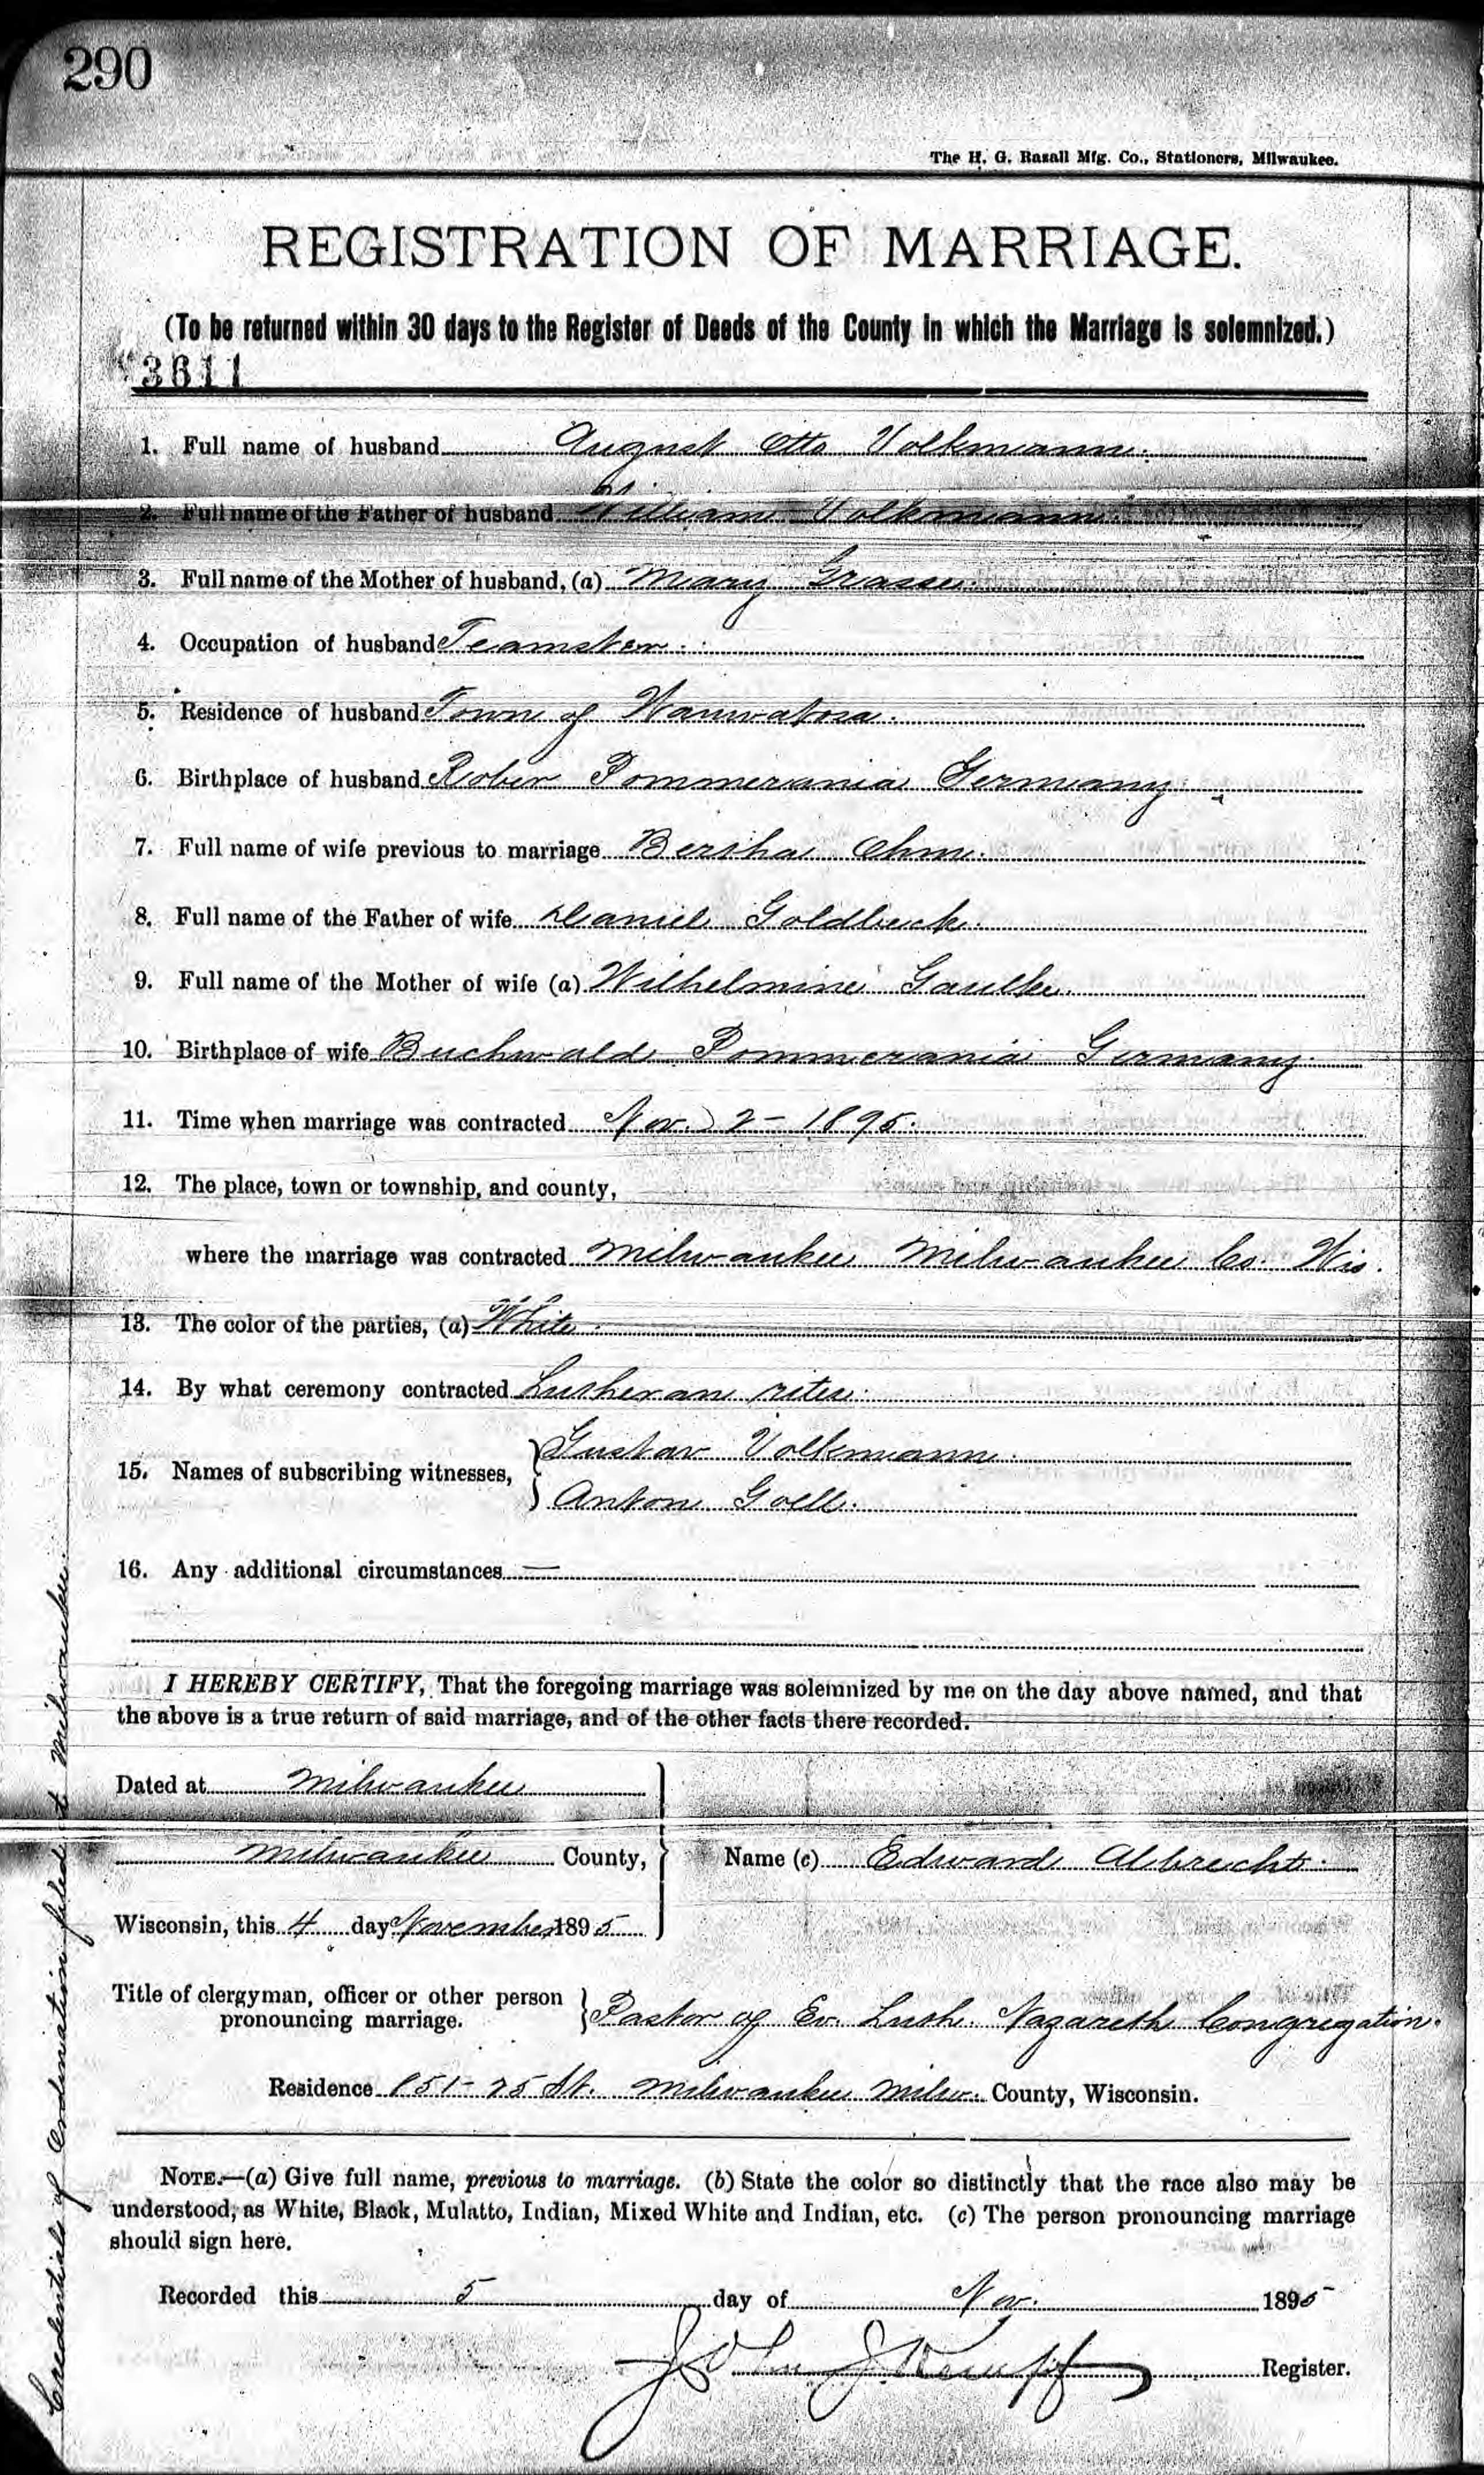 290
The H. G. Razall Mfg. Co., Stationers, Milwaukee.
REGISTRATION OF MARRIAGE.
(To be returned within 30 days to the Register of Deeds of the County in which the Marriage is solemnized.)
3611
1. Full name of husband August Otto Volkmann.
2. Full name of the Father of husband William Volkmann.
3. Full name of the Mother of husband, (a) Mary Grasse.
4. Occupation of husband Teamster.
5. Residence of husband Town of Wauwatosa.
6. Birthplace of husband Rober Pommerania Germany.
7. Full name of wife previous to marriage Bertha Ohm.
8. Full name of the Father of wife Daniel Goldbeck.
9. Full name of the Mother of wife (a) Wilhelmine Gaulke.
10. Birthplace of wife Buchwalde Pommerania Germany.
11. Time when marriage was contracted Nov. 2 - 1895.
12. The place, town or township, and county,
where the marriage was contracted Milwaukee Milwaukee Co. Wis.
13. The color of the parties, (a) White.
14. By what ceremony contracted Lutheran rites.
15. Names of subscribing witnesses, Gustav Volkmann.
Anton Goll.
16. Any additional circumstances —
I HEREBY CERTIFY, That the foregoing marriage was solemnized by me on the day above named, and that
the above is a true return of said marriage, and of the other facts there recorded.
Dated at Milwaukee
Milwaukee County, Name (c) Edward Albrecht.
Wisconsin, this 4 day November 1895
Title of clergyman, officer or other person
pronouncing marriage. Pastor of Ev. Luth. Nazareth Congregation.
Residence 851-25 St. Milwaukee Milw. County, Wisconsin.
NOTE.—(a) Give full name, previous to marriage. (b) State the color so distinctly that the race also may be
understood, as White, Black, Mulatto, Indian, Mixed White and Indian, etc. (c) The person pronouncing marriage
should sign here.
Recorded this 5 day of Nov. 1895
John J Kempf Register.
Credentials of Ordination filed at Milwaukee.